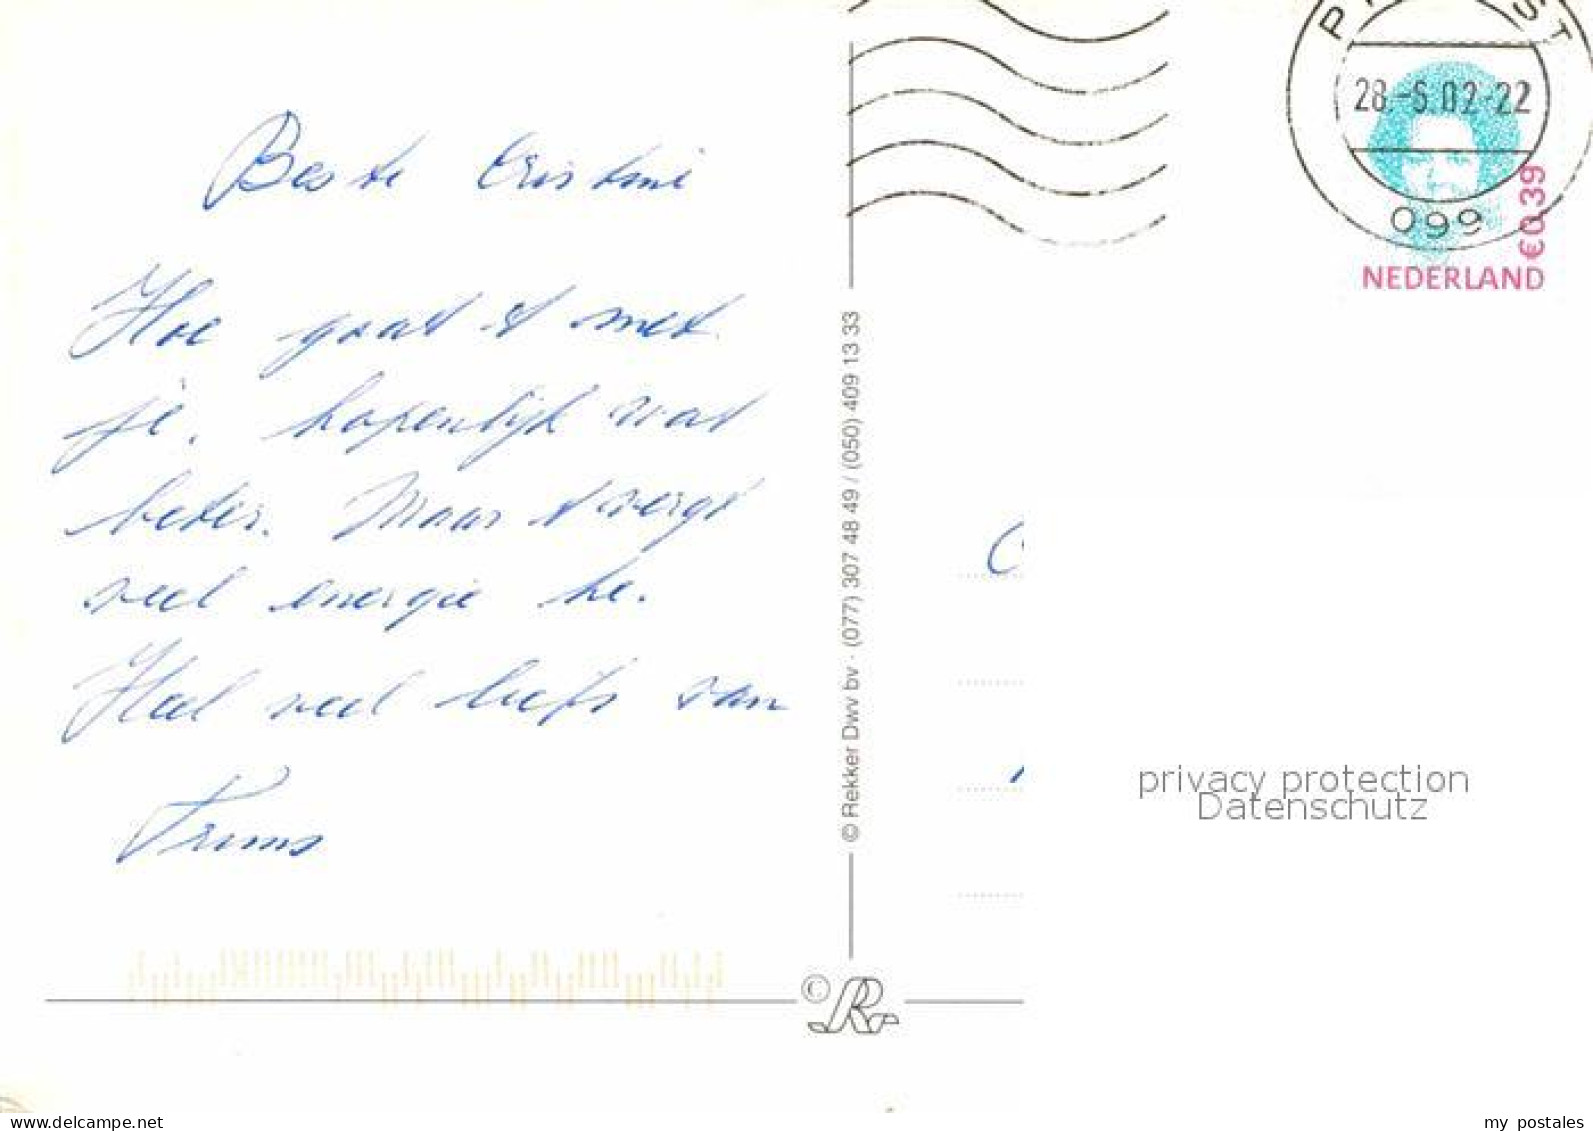 Beste Cristine
Hoe gaat 't met
je. hopenlijk wat
beter. Maar 't vergt
veel energie he.
Heel veel liefs van
Truus
© Rekker Dwv bv · (077) 307 48 49 / (050) 409 13 33
28.-6.02-22
099
€0,39
NEDERLAND
privacy protection
Datenschutz
© R
www.delcampe.net
my_postales